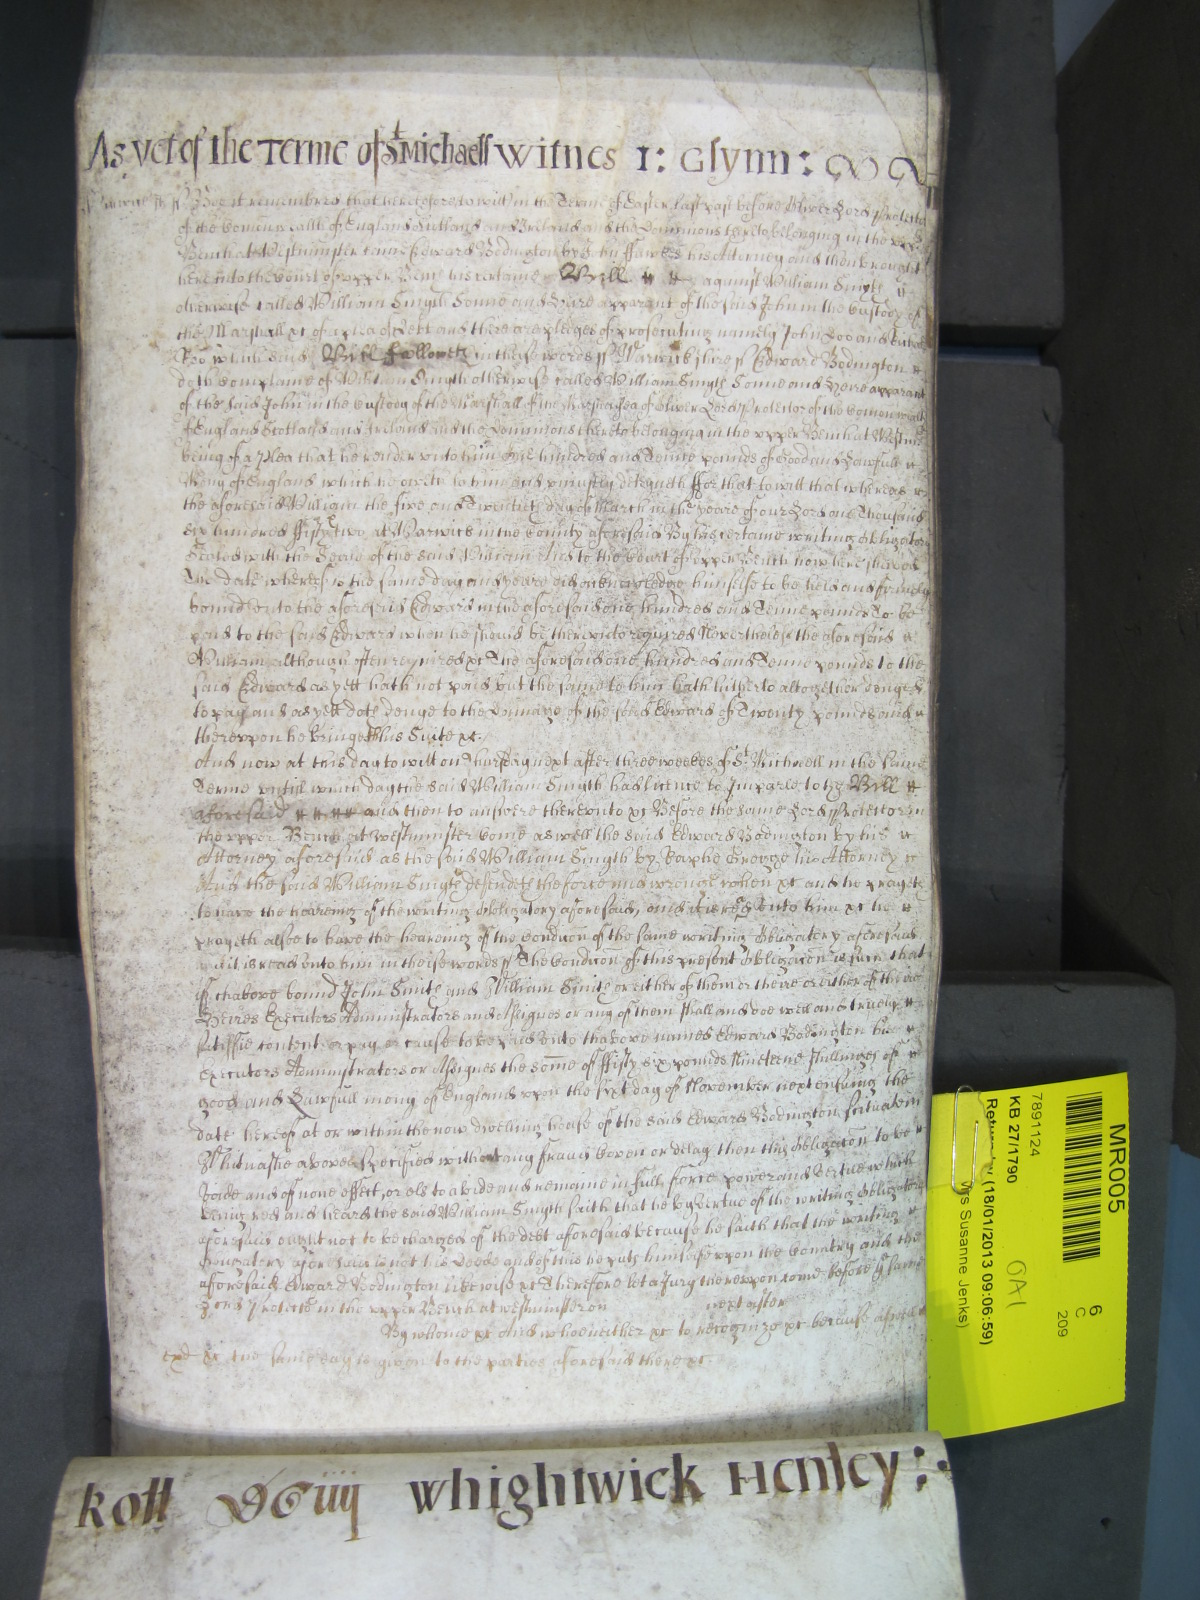 As yet of the Terme of St Michaell Witnes I: Glynn:
Warwicksh ss Bee it remembred that heretofore to witt in the Terme of Easter last past before Oliver Lord Protector
of the Comonwealth of England Scotland and Ireland and the Dominions thereto belonging in the upper
Bench at Westminster came Edward Bodington by John ffawkes his Attorney and then brought
here into the Court of upper Bench his certaine Bill against William Smyth
otherwise called William Smyth Sonne and Heire apparant of the said John in the Custody of
the Marshall &c of a plea of Debt and there are pledges of prosecuting namely John Doo and Richard
Roo which said Bill followeth in theise words ss Warwickshire ss Edward Bodington
doth complaine of William Smyth otherwise called William Smyth Sonne and Heire apparant
of the said John in the Custody of the Marshall of the Marshalsea of Oliver Lord Protector of the Comonwealth
of England Scotland and Ireland and the Dominions thereto belonging in the upper Bench at Westminster
being of a Plea that he render unto him one hundred and Tenne pounds of Good and Lawfull
Mony of England which he oweth to him and uniustly deteyneth ffor that to witt that whereas
the aforesaid William the five and Twentieth day of March in the yeare of our Lord one Thousand
six hundred ffifty two at Warwick in the County aforesaid By his certaine writing obligatory
Sealed with the Seale of the said William and to the Court of upper Bench now here shewed
the date whereof is the same day and yeare did acknowledge himselfe to be held and firmely
bound unto the aforesaid Edward in the aforesaid one hundred and Tenne pounds To be
paid to the said Edward when he should be thereunto required Neverthelesse the aforesaid
William although often required &c The aforesaid one hundred and Tenne pounds to the
said Edward as yett hath not paid but the same to him hath hitherto altogether denyed
to pay and as yett doth denye to the Dammage of the said Edward of Twenty pounds and
thereupon he bringeth his Suite &c.
And now at this day to witt on Thursday next after three weekes of St Michaell in the same
Terme untill which day the said William Smyth had licence to Imparle to the Bill
aforesaid and then to answere thereunto &c Before the same Lord Protector in
the upper Bench at Westminster come as well the said Edward Bodington by his
Attorney aforesaid as the said William Smyth by Raphe Greevye his Attorney
And the said William Smyth defendeth the force and wrong when &c and he prayeth
to have the hearing of the writing obligatory aforesaid, and it is read unto him &c he
prayeth alsoe to have the hearing of the Condicon of the same writing obligatory aforesaid
and it is read unto him in theise words ss The Condicon of this present obligacon is such that
if thabove bound John Smith and William Smith or either of them or theire or either of theire
Heires Executors Administrators and Assignes or any of them shall and doe well and truely
satisfie content or pay or cause to be paid unto thabove named Edward Bodington his
Executors Administrators or Assignes the some of ffifty six pounds Nineteene shillinges of
good and Lawfull mony of England upon the first day of November next ensuing the
date hereof at or within the now dwelling house of the said Edward Bodington scituate in
Whitnashe above specified without any fraud Coven or delay then this obligacon to be
voide and of none effect, or els to abide and remaine in full force power and vertue which
being red and heard the said William Smyth saith that he by vertue of the writing obligatory
aforesaid ought not to be charged of the debt aforesaid because he saith that the writing
obligatory aforesaid is not his Deede and of this he puts himselfe upon the Country and the
aforesaid Edward Bodington likewise &c Therefore let a Jury thereupon come before the same
Lord Protector in the upper Bench at Westminster on next after
By whome &c And who neither &c to recognize &c because aswell
exd &c the same day is given to the parties aforesaid there &c
Roll whightwick Henley:
MR005
6
C
209
7891124
KB 27/1790
Return by (18/01/2013 09:06:59)
Mrs Susanne Jenks)